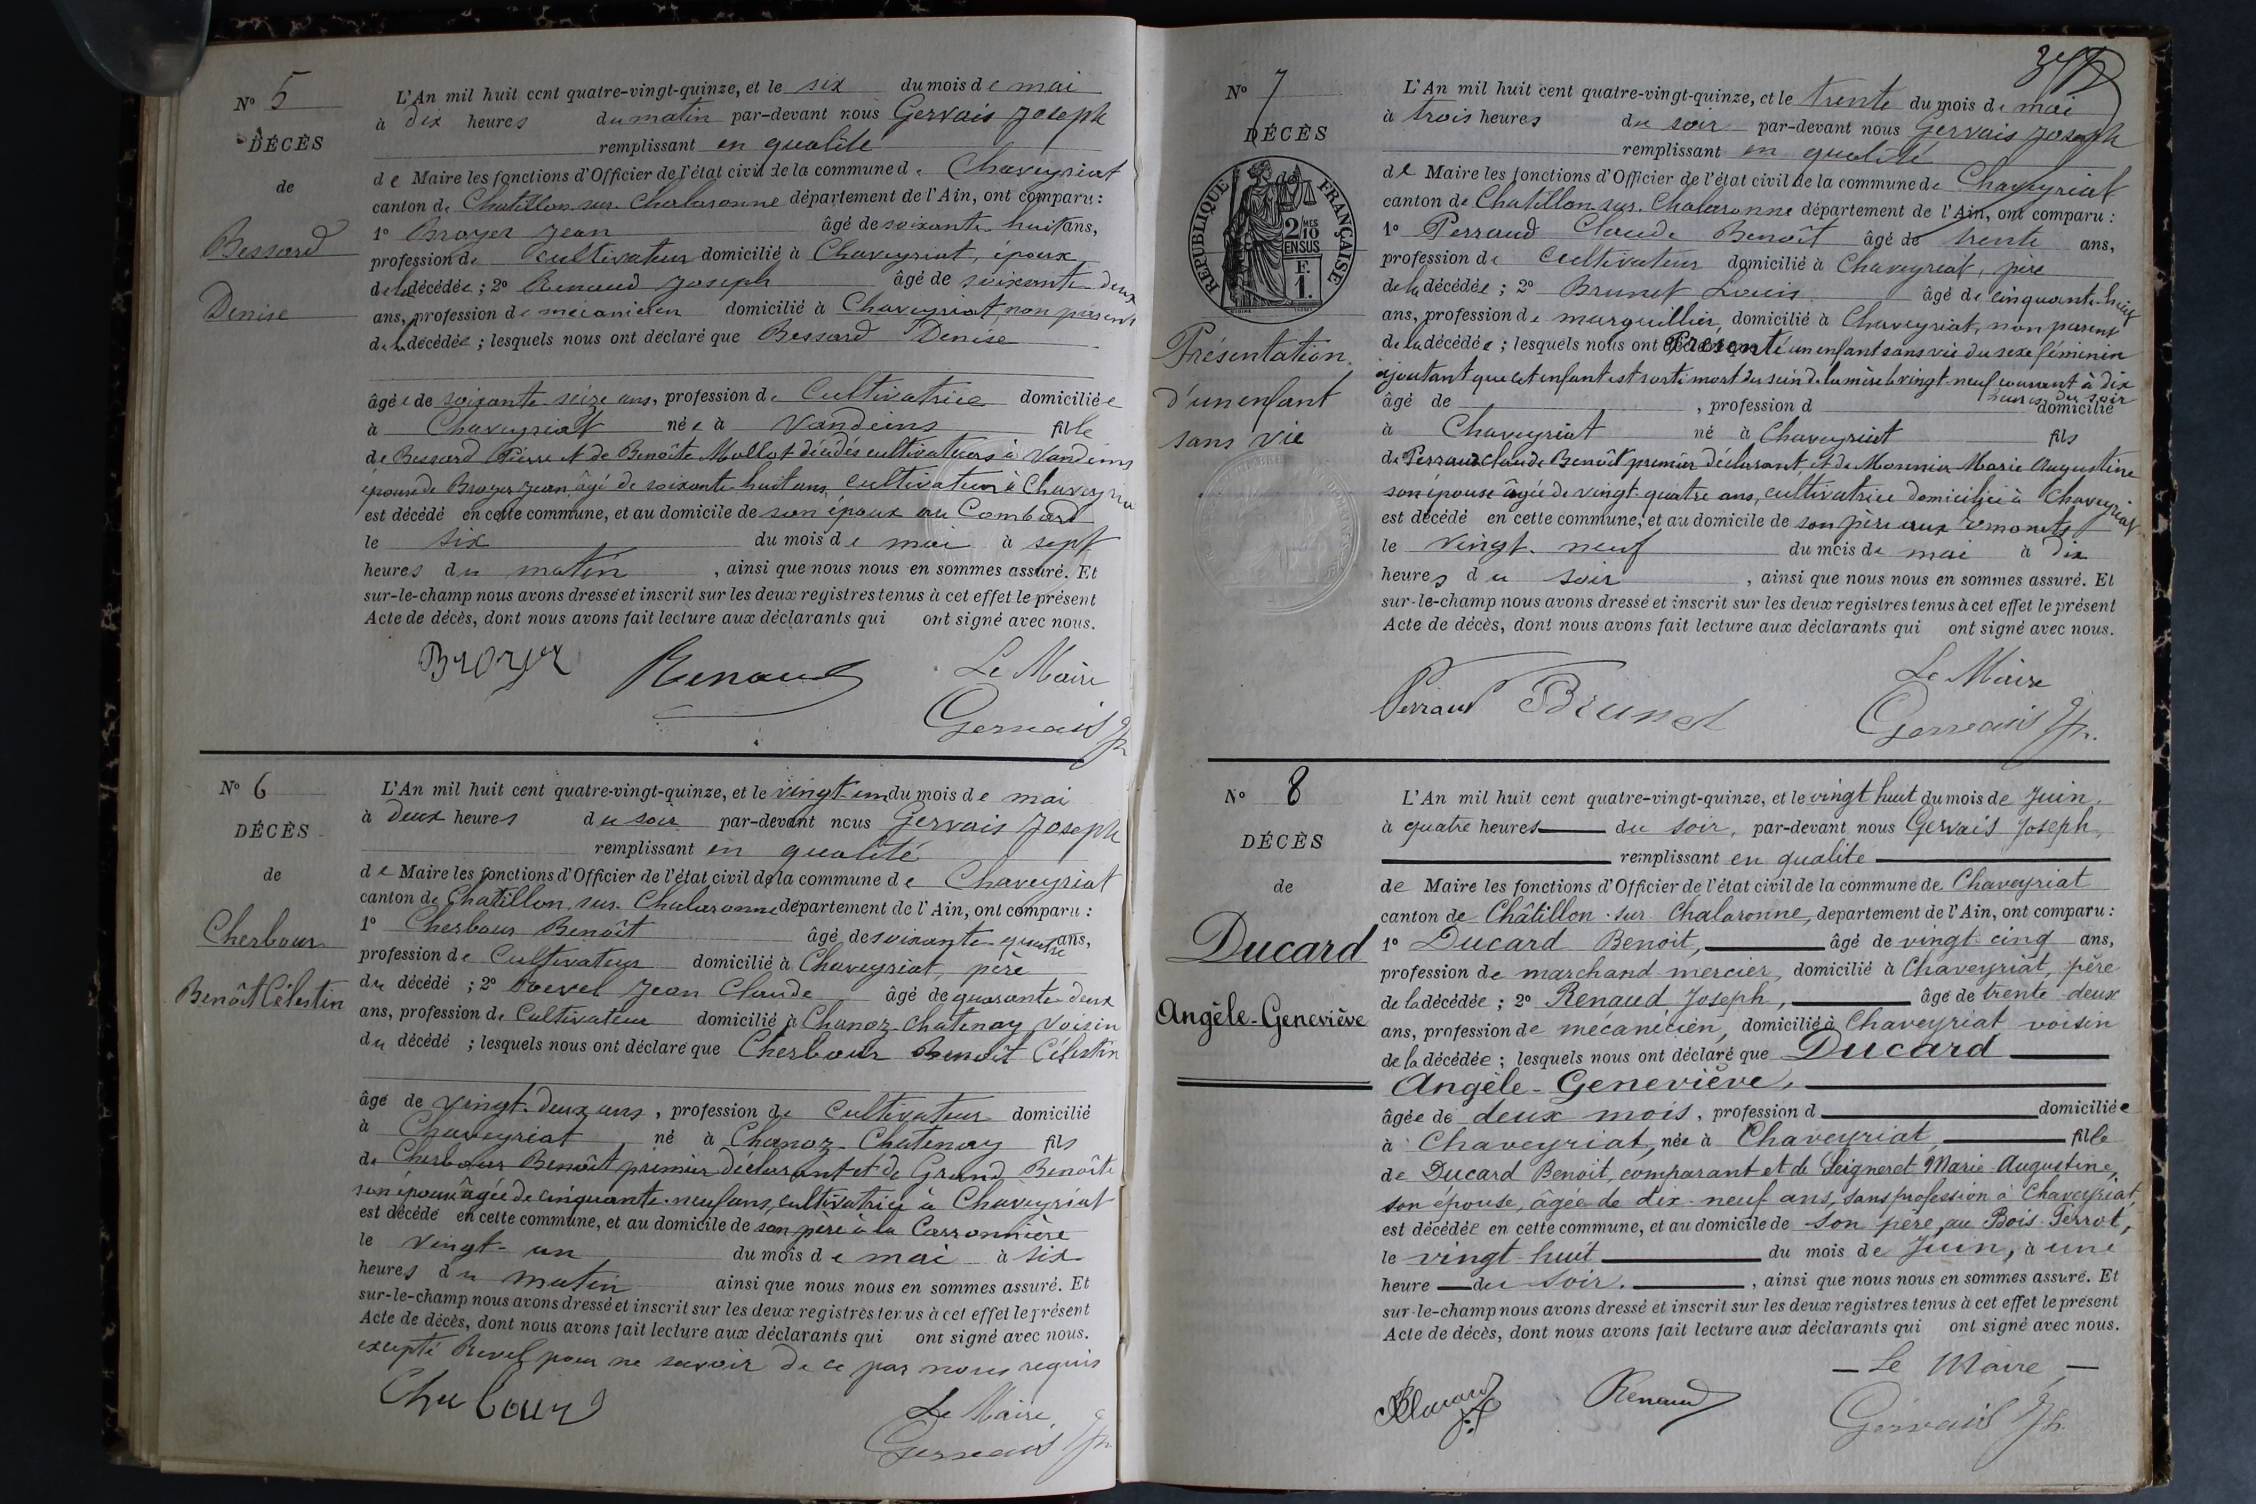 N° 5
DÉCÈS
de
Bessard
Denise
L'An mil huit cent quatre-vingt-quinze, et le six du mois de mai
à dix heures du matin par-devant nous Gervais Joseph
remplissant en qualité
de Maire les fonctions d'Officier de l'état civil de la commune de Chaveyriat
canton de Chatillon sur Chalaronne département de l'Ain, ont comparu :
1° Broyer Jean âgé de soixante huit ans,
profession de cultivateur domicilié à Chaveyriat, époux
de la décédée ; 2° Renaud Joseph âgé de soixante deux
ans, profession de mécanicien domicilié à Chaveyriat, non parent
de la décédée ; lesquels nous ont déclaré que Bessard Denise
âgée de soixante seize ans, profession de Cultivatrice domiciliée
à Chaveyriat née à Vandeins fille
de Bessard Pierre et de Benoîte Mollot décédés cultivateurs à Vandeins
épouse de Broyer Jean âgé de soixante huit ans, cultivateur à Chaveyria
est décédé en cette commune, et au domicile de son époux au Combard
le six du mois de mai à sept
heures du matin , ainsi que nous nous en sommes assuré. Et
sur-le-champ nous avons dressé et inscrit sur les deux registres tenus à cet effet le présent
Acte de décès, dont nous avons fait lecture aux déclarants qui ont signé avec nous.
Broyer Renaud Le Maire
Gervais Jh
N° 6
DÉCÈS
de
Cherbour
Benoît Célestin
L'An mil huit cent quatre-vingt-quinze, et le vingt-un du mois de mai
à deux heures du soir par-devant nous Gervais Joseph
remplissant en qualité
de Maire les fonctions d'Officier de l'état civil de la commune de Chaveyriat
canton de Chatillon sur Chalaronne département de l'Ain, ont comparu :
1° Cherbour Benoît âgé de soixante quatre ans,
profession de Cultivateur domicilié à Chaveyriat, père
du décédé ; 2° Revel Jean Claude âgé de quarante-deux
ans, profession de Cultivateur domicilié à Chanoz-Chatenay voisin
du décédé ; lesquels nous ont déclaré que Cherbour Benoît Célestin
âgé de vingt-deux ans , profession de Cultivateur domicilié
à Chaveyriat , né à Chanoz-Chatenay fils
de Cherbour Benoît premier déclarant et de Grand Benoîte
son épouse âgée de cinquante-neuf ans, cultivatrice à Chaveyriat
est décédé en cette commune, et au domicile de son père à la Carronnière
le vingt-un du mois de mai à six
heures du matin ainsi que nous nous en sommes assuré. Et
sur-le-champ nous avons dressé et inscrit sur les deux registres tenus à cet effet le présent
Acte de décès, dont nous avons fait lecture aux déclarants qui ont signé avec nous.
excepté Revel pour ne savoir de ce par nous requis
Cherbour Le Maire
Gervais Jh
N° 7
DÉCÈS
de
RÉPUBLIQUE FRANÇAISE
2/10 MES
EN SUS
F.
1.
Présentation
d'un enfant
sans vie
L'An mil huit cent quatre-vingt-quinze, et le trente du mois de mai
à trois heures du soir par-devant nous Gervais Joseph
remplissant en qualité
de Maire les fonctions d'Officier de l'état civil de la commune de Chaveyriat
canton de Chatillon sur Chalaronne département de l'Ain, ont comparu :
1° Perraud Claude Benoît âgé de trente ans,
profession de cultivateur domicilié à Chaveyriat, père
de la décédée ; 2° Brunet Louis âgé de cinquante-huit
ans, profession de marguillier, domicilié à Chaveyriat, non parent
de la décédée ; lesquels nous ont présenté un enfant sans vie du sexe féminin
ajoutant que cet enfant est sorti mort du sein de la mère le vingt-neuf courant à dix
heures du soir
âgé de , profession d domicilié
à Chaveyriat né à Chaveyriat fils
de Perraud Claude Benoît premier déclarant, et de Monnier Marie Augustine
son épouse âgée de vingt-quatre ans, cultivatrice domiciliée à Chaveyriat
est décédé en cette commune, et au domicile de son père aux
le vingt-neuf du mois de mai à dix
heures du soir , ainsi que nous nous en sommes assuré. Et
sur-le-champ nous avons dressé et inscrit sur les deux registres tenus à cet effet le présent
Acte de décès, dont nous avons fait lecture aux déclarants qui ont signé avec nous.
Perraud Brunet Le Maire
Gervais Jh.
N° 8
DÉCÈS
de
Ducard
Angèle-Geneviève
L'An mil huit cent quatre-vingt-quinze, et le vingt huit du mois de Juin,
à quatre heures du soir, par-devant nous Gervais Joseph,
remplissant en qualité
de Maire les fonctions d'Officier de l'état civil de la commune de Chaveyriat
canton de Châtillon-sur-Chalaronne, département de l'Ain, ont comparu :
1° Ducard Benoit, âgé de vingt-cinq ans,
profession de marchand mercier, domicilié à Chaveyriat, père
de la décédée ; 2° Renaud Joseph, âgé de trente-deux
ans, profession de mécanicien, domicilié à Chaveyriat voisin
de la décédée ; lesquels nous ont déclaré que Ducard
Angèle-Geneviève,
âgée de deux mois, profession d domiciliée
à Chaveyriat, née à Chaveyriat, fille
de Ducard Benoit, comparant et de Seigneret Marie-Augustine,
son épouse, âgée de dix-neuf ans, sans profession à Chaveyriat,
est décédée en cette commune, et au domicile de son père, au Bois-Perrot,
le vingt-huit du mois de Juin, à une
heure du soir. , ainsi que nous nous en sommes assuré. Et
sur-le-champ nous avons dressé et inscrit sur les deux registres tenus à cet effet le présent
Acte de décès, dont nous avons fait lecture aux déclarants qui ont signé avec nous.
Renaud — Le Maire, —
Gervais Jh.